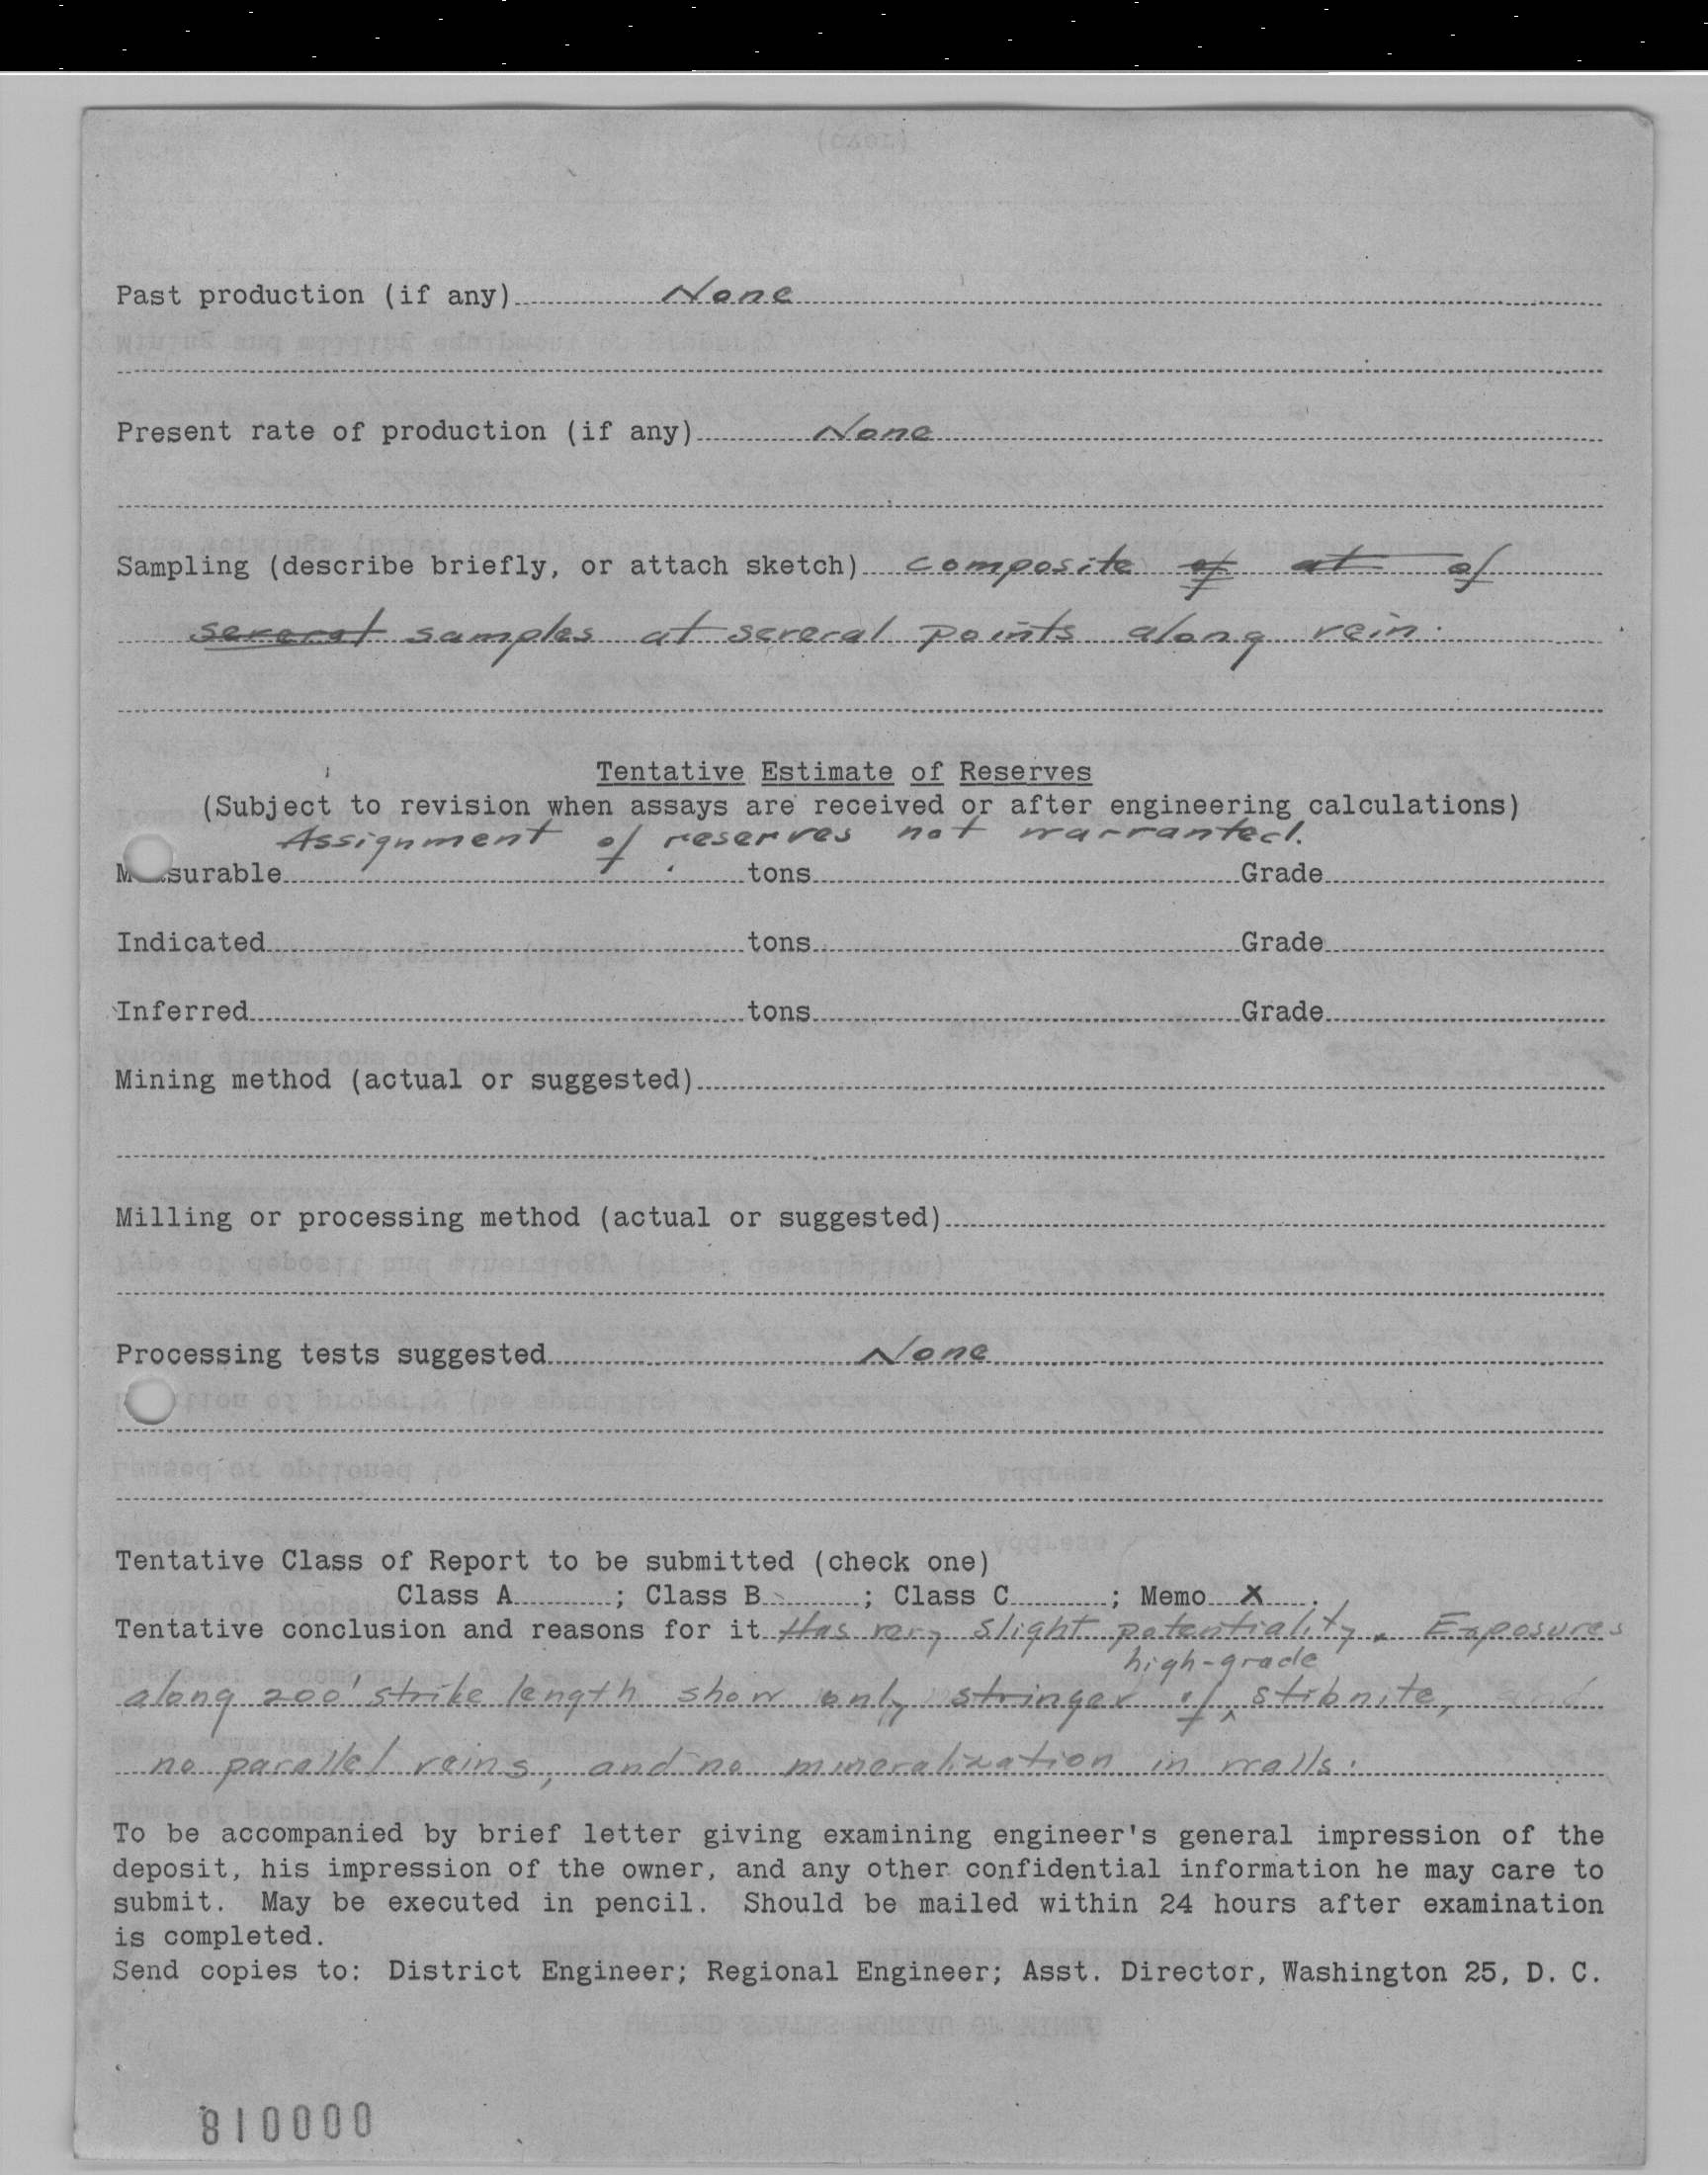 Past production (if any) None
Present rate of production (if any) None
Sampling (describe briefly, or attach sketch) composite of at of
several samples at several points along vein.
Tentative Estimate of Reserves
(Subject to revision when assays are received or after engineering calculations)
Assignment of reserves not warranted.
Measurable tons Grade
Indicated tons Grade
Inferred tons Grade
Mining method (actual or suggested)
Milling or processing method (actual or suggested)
Processing tests suggested None
Tentative Class of Report to be submitted (check one)
Class A ; Class B ; Class C ; Memo X .
Tentative conclusion and reasons for it Has very slight potentiality. Exposures
high-grade
along 200' strike length show only stringer of ^ stibnite, and
no parallel veins, and no mineralization in walls.
To be accompanied by brief letter giving examining engineer's general impression of the
deposit, his impression of the owner, and any other confidential information he may care to
submit. May be executed in pencil. Should be mailed within 24 hours after examination
is completed.
Send copies to: District Engineer; Regional Engineer; Asst. Director, Washington 25, D. C.
810000